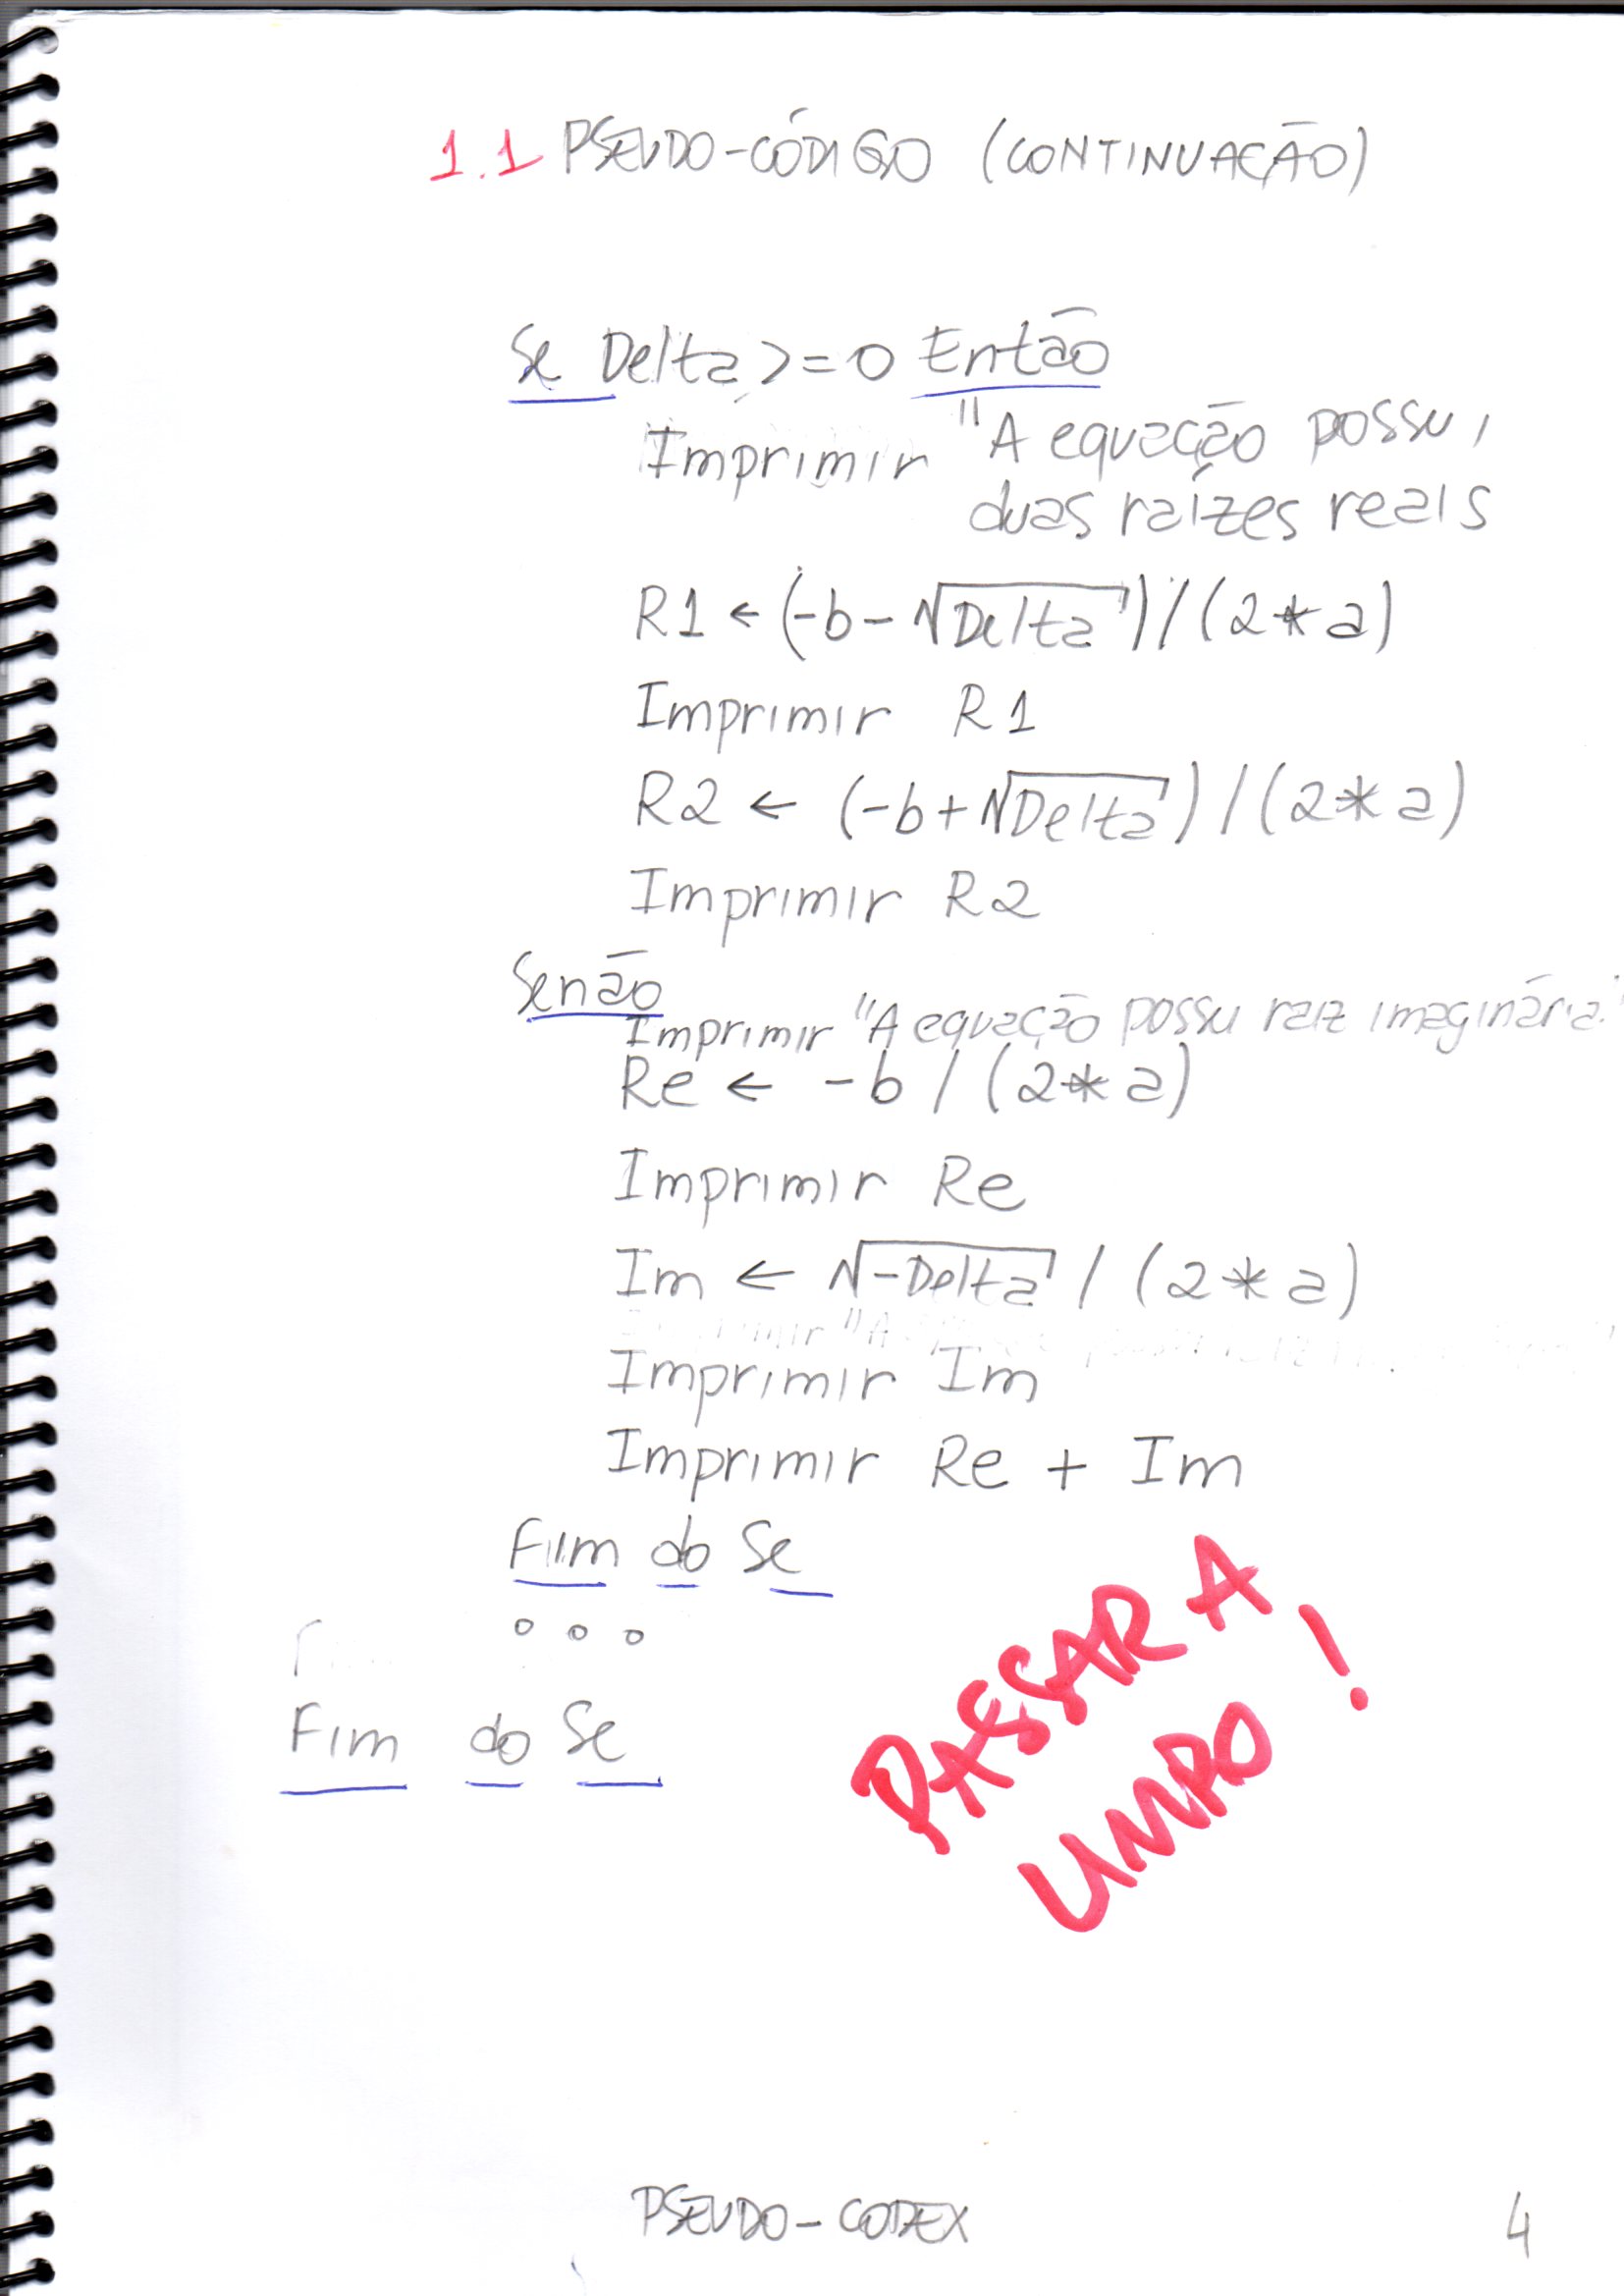 1.1 PSEUDO-CÓDIGO (CONTINUAÇÃO)
Se Delta >= 0 Então
Imprimir "A equação possui
duas raízes reais
R1 ← (-b-√Delta)/(2*a)
Imprimir R1
R2 ← (-b+√Delta)/(2*a)
Imprimir R2
Senão
Imprimir "A equação possu raiz imaginária."
Re ← -b/(2*a)
Imprimir Re
Im ← √-Delta / (2*a)
Imprimir Im
Imprimir Re + Im
Fim do Se
° ° °
Fim do Se
PASSAR A
LIMPO !
PSEUDO-CODEX 4